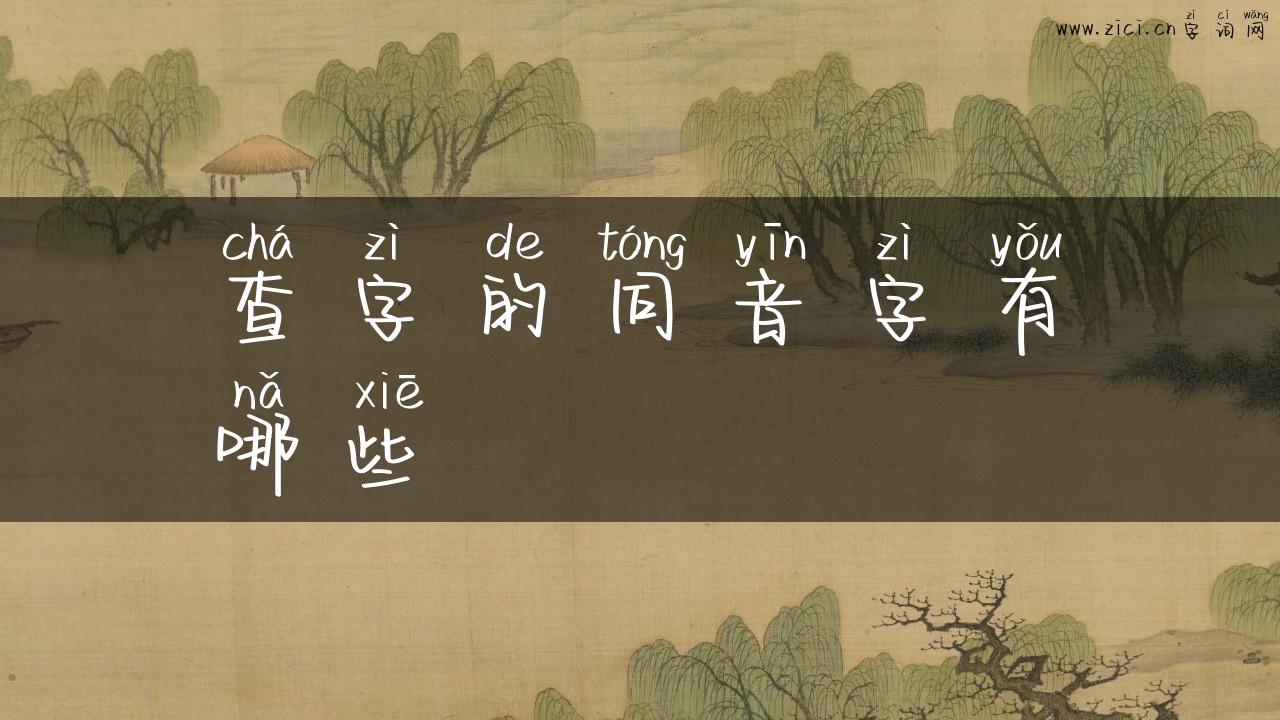 zì cí wǎng
www.zici.cn 字词网
chá zì de tóng yīn zì yǒu
查字的同音字有
nǎ xiē
哪些